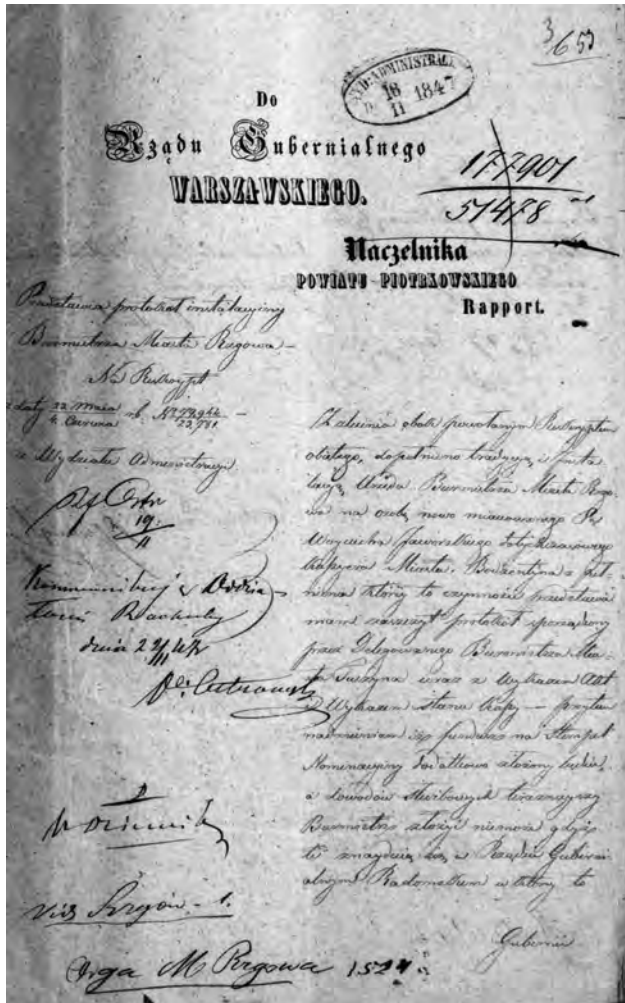 3/653
RZĄD·ADMINISTRAC
D. 18/II 1847
Do
Rządu Gubernialnego
WARSZAWSKIEGO.
177901
51478
Naczelnika
POWIATU PIOTRKOWSKIEGO
Rapport.
Przedstawia protokół instalacyjny
Burmistrza Miasta Rzgowa –
Na Reskrypt
z daty 22 Maja / 4 Czerwca r.b. N
z Wydziału Administracyi.
19/11
Kommunikuj z Oddzia-
łami Rachuby
dnia 22/11 47
W dopełnieniu obok powołanym Reskryptem
objętego, dopełniono tradycyą i Insta
lacyą Urzędu Burmistrza Miasta Rzgo
wa na osobę nowo mianowanego
Wojciecha Jaworskiego dotychczasowego
Kassyera Miasta Bodzentyna z speł-
nienia której to czynności przedstawia
mam zaszczyt protokół sporządzony
przez Delegowanego Burmistrza Mia-
sta Tuszyna wraz z Wykazem Akt
i Wykazem stanu Kassy – przytem
nadmieniam iż fundusz na Stempel
Nominacyjny dodatkowo złożony będzie,
a dowodów służbowych teraźniejszy
Burmistrz złożyć niemoże gdyż
te znajdują się w Rządzie Guberni-
alnym Radomskim w której to
Gubernii
W Dzienniku
Rzgów – 1.
M Rzgowa 1524